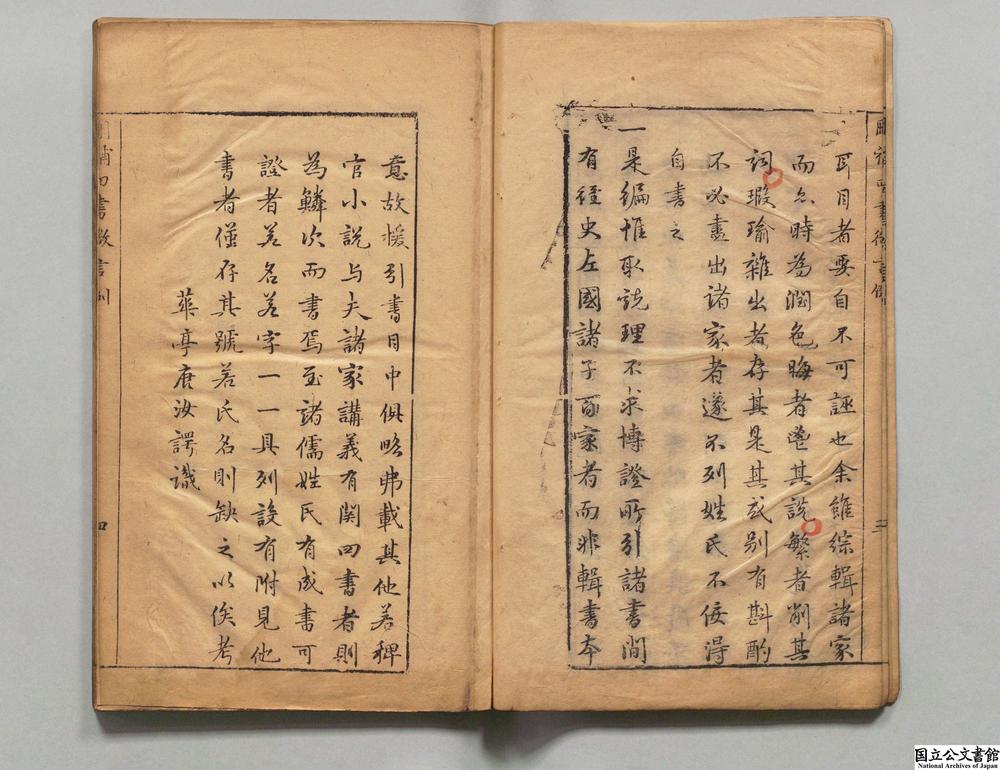 耳目者要自不可誣也余雖綜輯諸家
而亦時為潤色晦者邕其說繁者削其
詞瑕瑜雜出者存其是其或别有斟酌
不必盡出諸家者遂不列姓氏不佞得
自書之
一是編惟取説理不求博證所引諸書間
有經史左國諸子百家者而非輯書本
三
意故援引書目中俱略弗載其他若稗
官小說与夫諸家講義有関四書者則
為鱗次而書焉至諸儒姓氏有成書可
證者若名若字一一具列設有附見他
書者僅存其號若氏名則缺之以俟考
華亭唐汝諤識
四
国立公文書館
National Archives of Japan